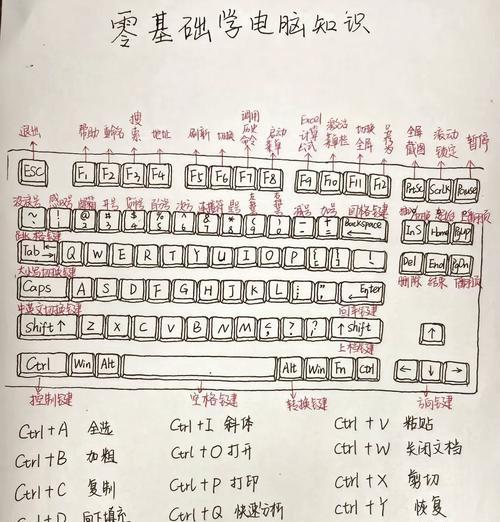 零基础学电脑知识
退出 帮助 重命名 搜索 地址 刷新 切换 调用历史命令 启动菜单 Excel计算公式 激活菜单栏 切换全屏 全屏截图 滚动锁定 暂停
ESC F1 F2 F3 F4 F5 F6 F7 F8 F9 F10 F11 F12 PrtSc ScrLK Pause
~ ! @ 2 # 3 $ 4 % 5 ^ 6 & 7 * 8 Backspace InS Home PgUp
Tab Q W E R T Y U I O P Del End PgDn
大小写切换键 删除 结束
Caps A S D F G H J K L Enter
中英文切换键 回车键
Shift ↑ Z X C V B N M ↑ shift ↑
上档键
Ctrl Win Alt Alt Win Fn Ctrl ← ↓ →
控制键 空格键 转换键 方向键
Ctrl + A 全选 Ctrl + I 斜体 Ctrl + V 粘贴
Ctrl + B 加粗 Ctrl + O 打开 Ctrl + W 关闭文档
Ctrl + C 复制 Ctrl + P 打印 Ctrl + X 剪切
Ctrl + D 向下填充 Ctrl + Q 快速分析 Ctrl + Y 恢复